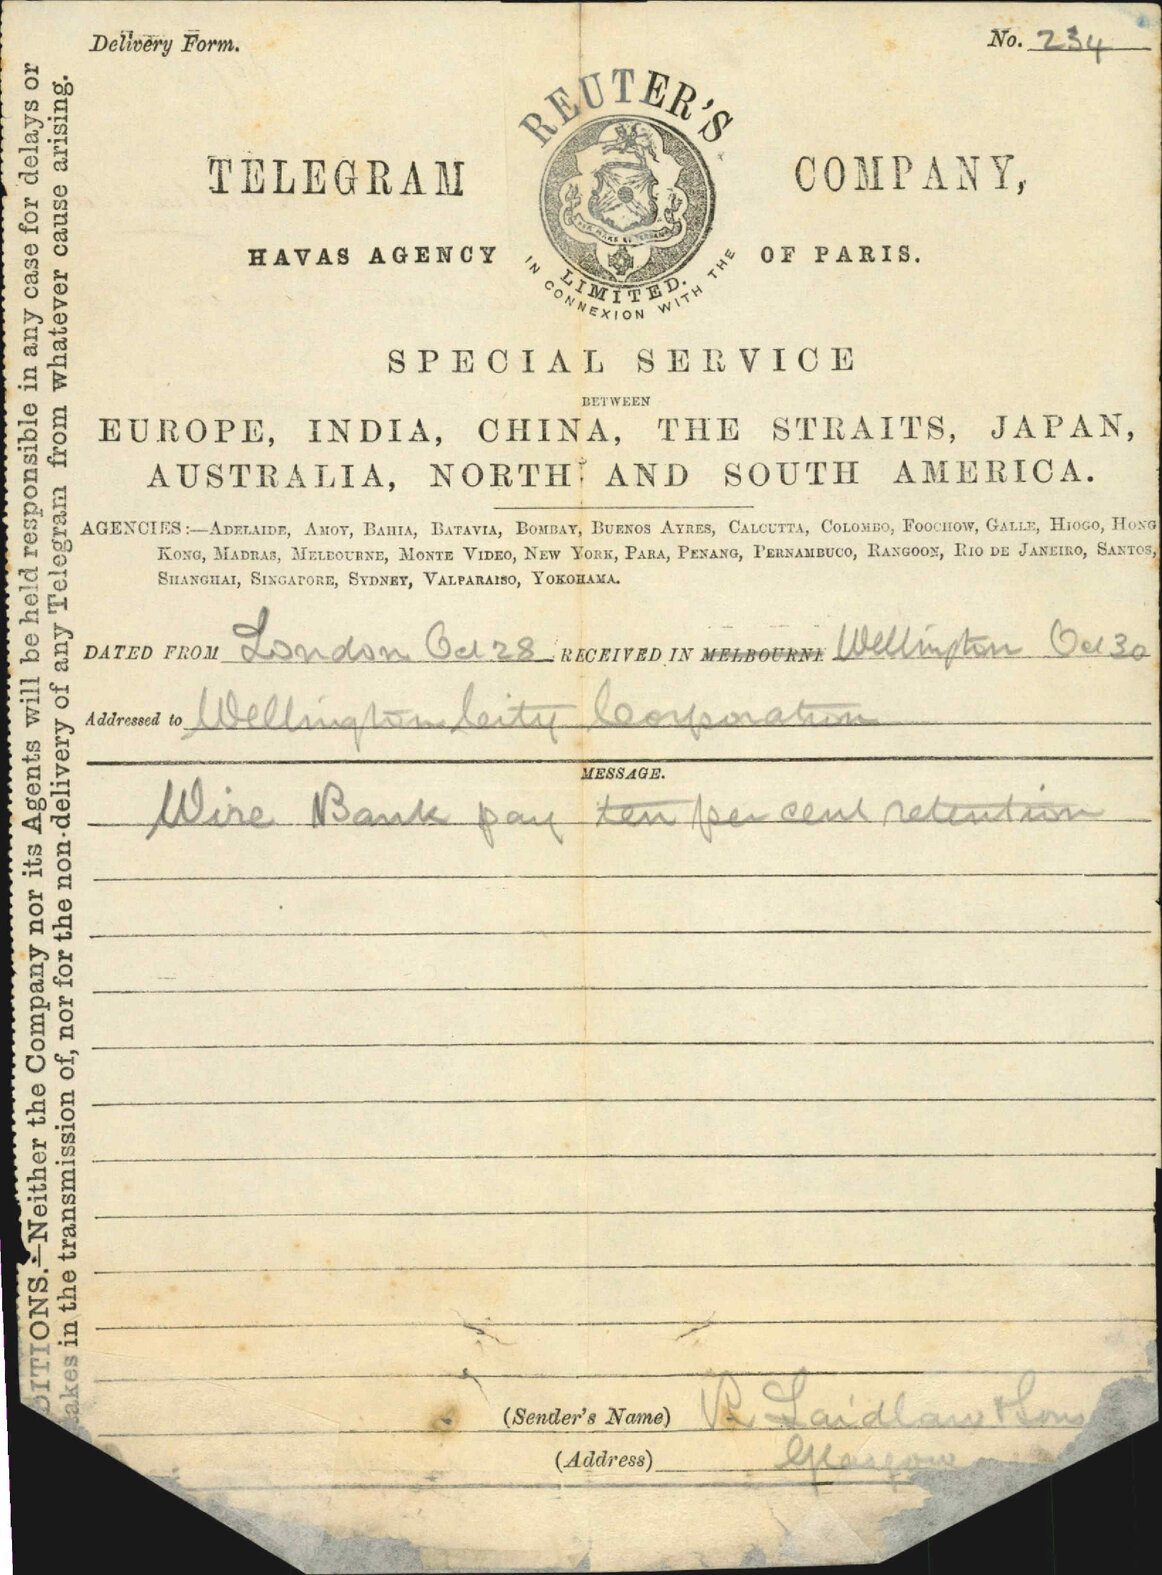 Delivery Form.
No. 234
REUTER'S
TELEGRAM COMPANY,
LIMITED.
IN CONNEXION WITH THE
HAVAS AGENCY OF PARIS.
SPECIAL SERVICE
BETWEEN
EUROPE, INDIA, CHINA, THE STRAITS, JAPAN,
AUSTRALIA, NORTH AND SOUTH AMERICA.
AGENCIES:—ADELAIDE, AMOY, BAHIA, BATAVIA, BOMBAY, BUENOS AYRES, CALCUTTA, COLOMBO, FOOCHOW, GALLE, HIOGO, HONG
KONG, MADRAS, MELBOURNE, MONTE VIDEO, NEW YORK, PARA, PENANG, PERNAMBUCO, RANGOON, RIO DE JANEIRO, SANTOS,
SHANGHAI, SINGAPORE, SYDNEY, VALPARAISO, YOKOHAMA.
DATED FROM London Oct 28 RECEIVED IN MELBOURNE Wellington Oct 30
Addressed to Wellington City Corporation
MESSAGE.
Wire Bank pay ten per cent retention
(Sender's Name) R Laidlaw & Sons
(Address) Glasgow
DITIONS.—Neither the Company nor its Agents will be held responsible in any case for delays or
takes in the transmission of, nor for the non-delivery of any Telegram from whatever cause arising.